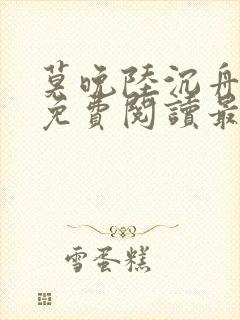 莫晚陸沉舟
免費閱讀最
雪蛋糕